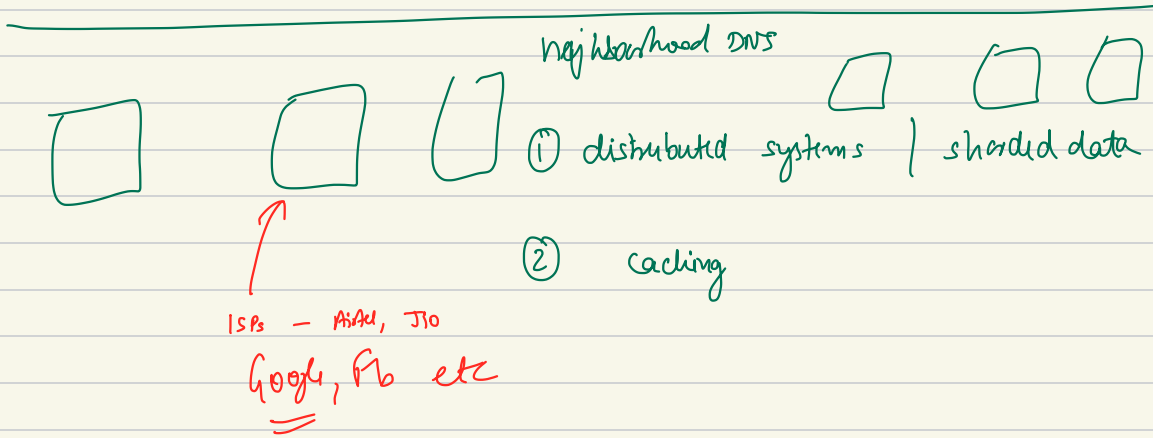 neighborhood DNS
① distributed systems | sharded data
② caching
ISPs — Airtel, JIO
Google, Fb etc